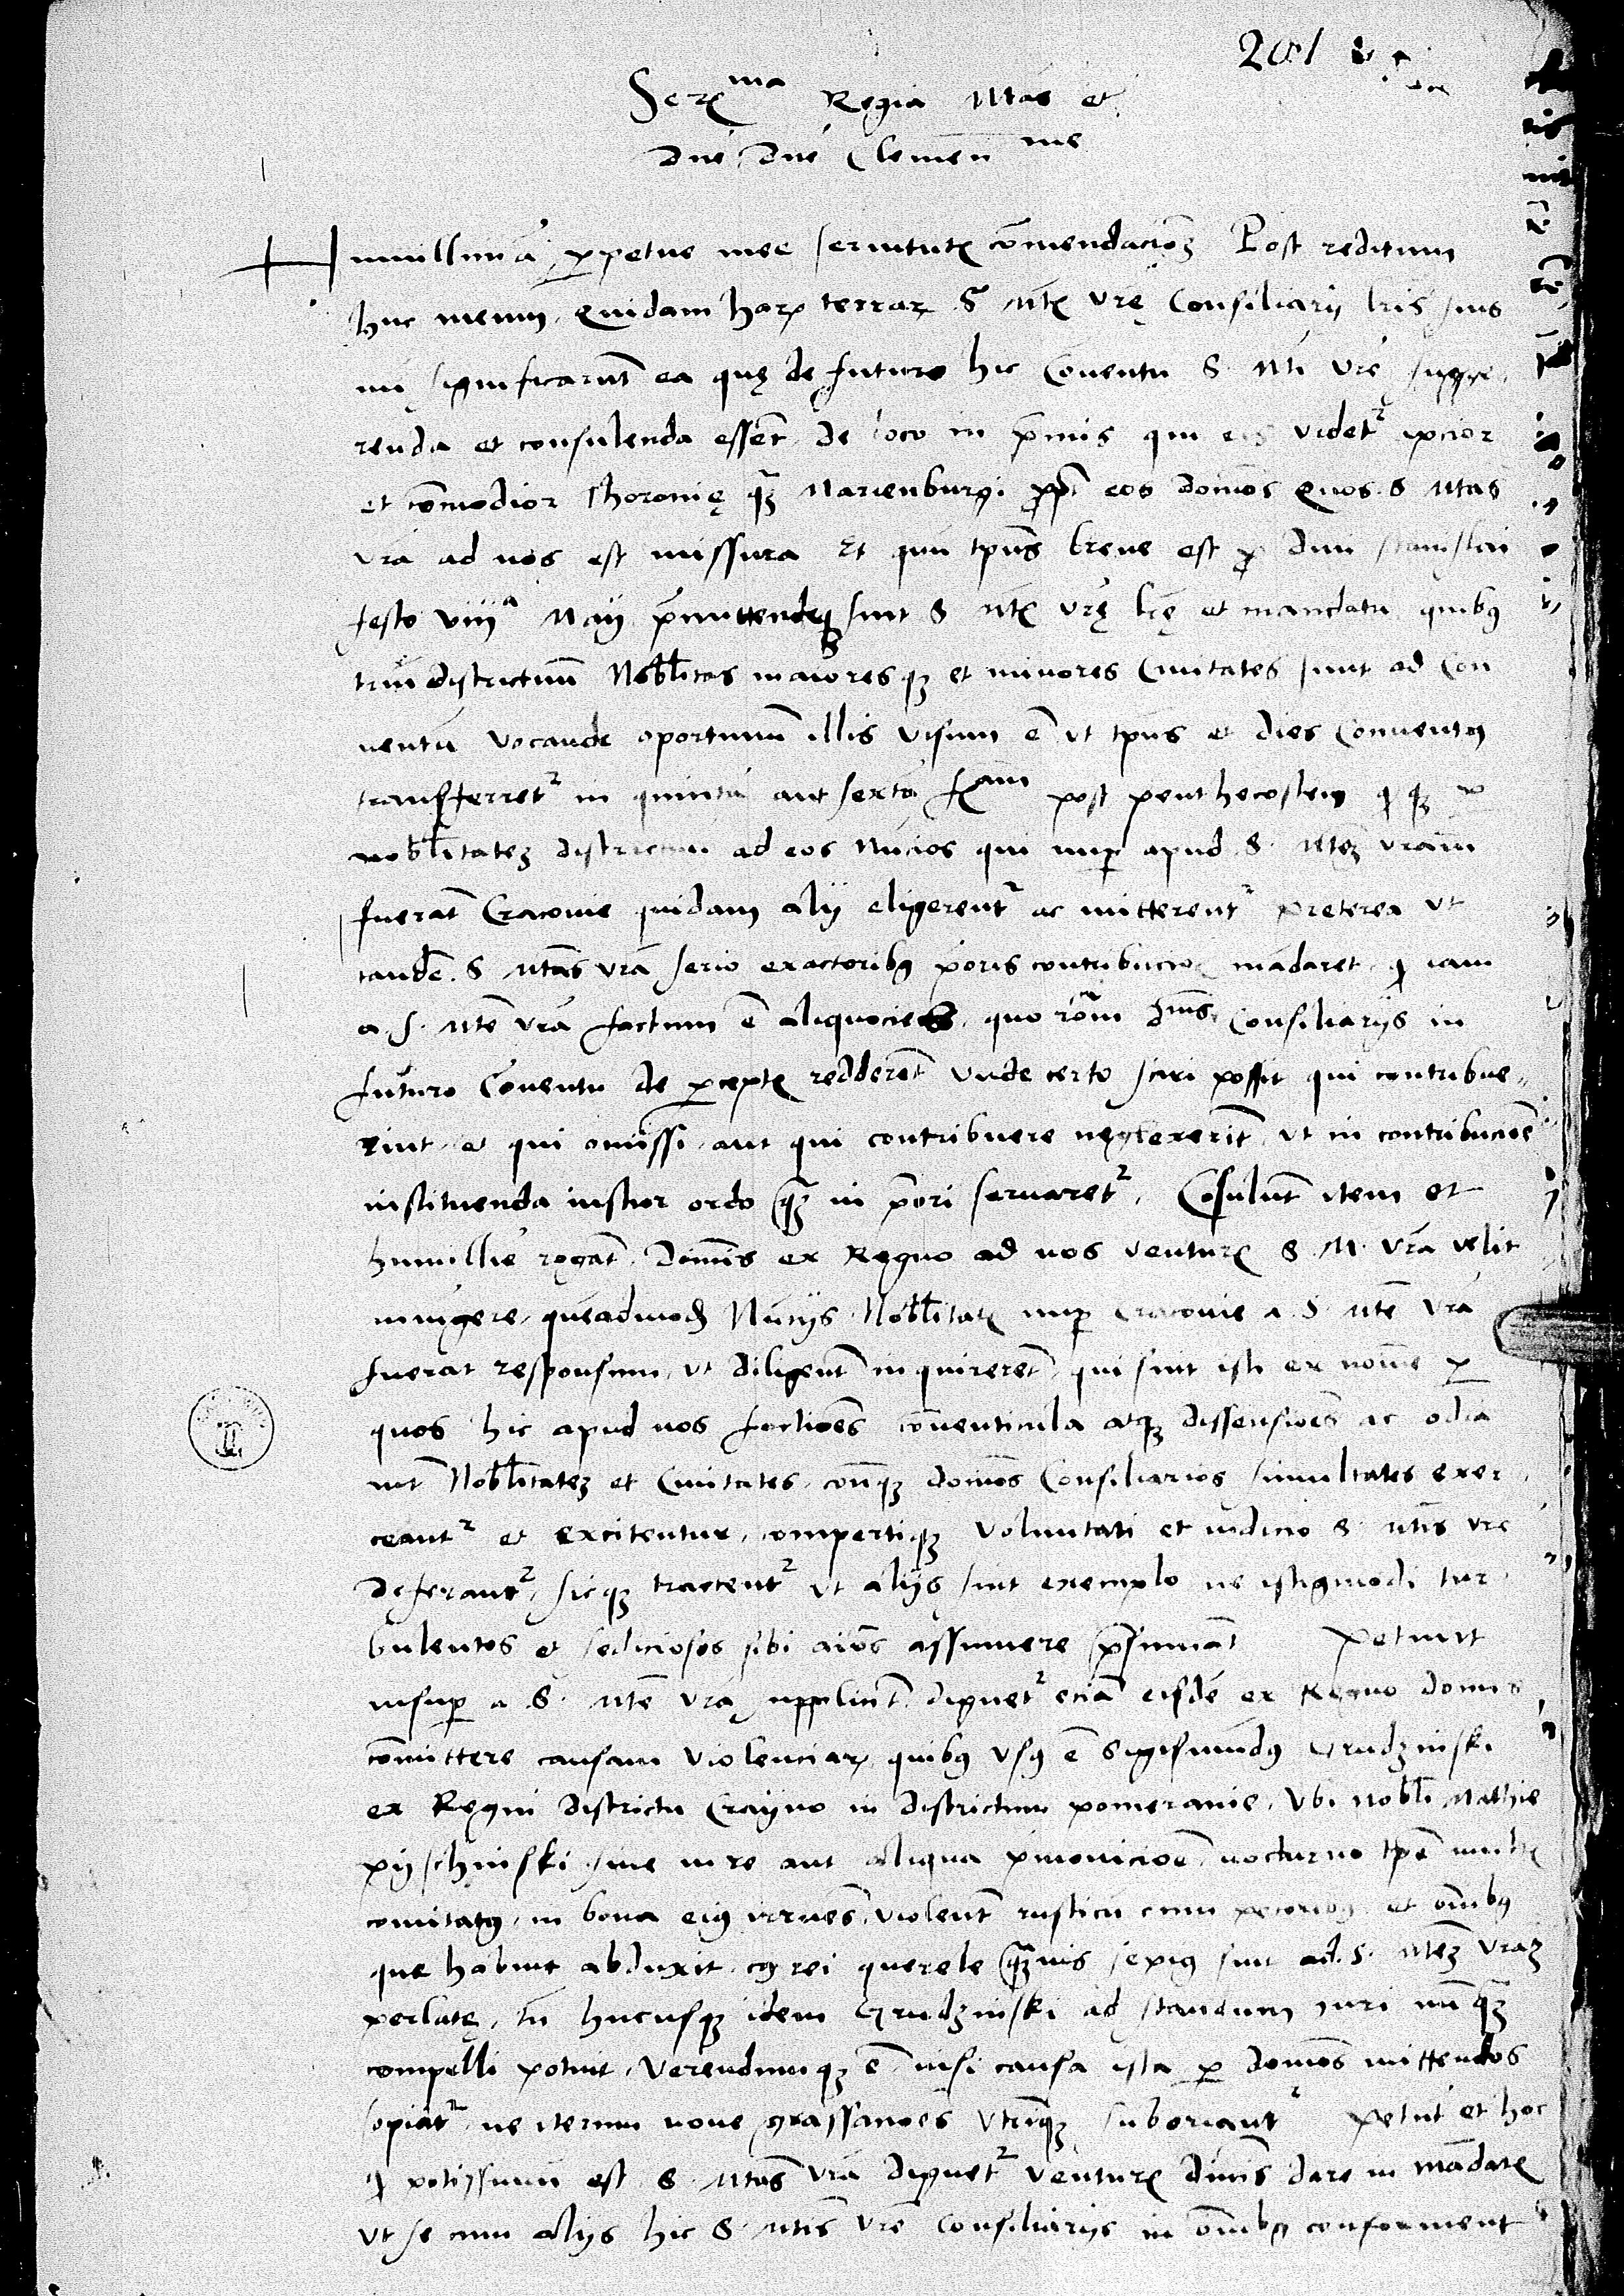 201
Ser(ma) Regia Mtas et
dne dne Clemen(me)
Humillimā perpetue mee seruitutis cōmendacionē Post reditum
huc meum, Quidam harum terrarum S. Mtis Vrę Consiliarij lris suis
mi significarunt ea quę de futuro hic Conuentu S. Mti Vre sugge,
renda et consulenda essent. De loco in prmis qui eis videt(ur) apcior
et cōmodior Thoronię quam Marienburgi propter eos domos Quos S Mtas
Vra ad nos est missura Et qm tpus breue est pro diui Stanislai
festo viij(a) Maij premittendę sint S Mtis Vrę lrę et mandata quibus
trium districtuum Nobllitas maioresque et minores Ciuitates sunt ad Con
uentū vocande oportunum illis visum ē vt tpus et dies Conuentus
transferret(ur) in quintā aut sextā f(am) post penthecosten
nobllitatem districtuum ad eos Nūcios qui nuper apud S. Mtem Vram
fuerāt Cracouie quidam alij eligerent(ur) ac mitterent(ur) preterea vt
tandē S Mtas vra serio exactoribus prioris contribucionis mādaret, quod iam
a S. Mte Vra factum ē aliquocies, quo rōnem dnis Consiliarijs in
futuro Conuentu de perceptis redderēt vnde certo sciri possit qui contribue,,
rint, et qui omissi, aut qui contribuere neglexerīt, vt in contribucione
instituenda iustior ordo quam in priori seruaret(ur). Cōsulunt item et
humillie rogāt, Domis ex Regno ad nos venturis S. M. Vra velit
iniūgere, quēadmodum Nūcijs Nobllitatis nuper Cracouie a S. Mte Vra
fuerat responsum, vt diligent inquirerēt, qui sint isti ex noīe per
quos hic apud nos factiōes conuenticula atque dissensioēs ac odia
int Nobllitatem et Ciuitates, contraque domos Consiliarios simultates exer,
ceant(ur) et excitentur, compertique voluntati et iudicio S. Mtis Vre
deferant(ur), sicque tractent(ur) vt alijs sint exemplo ne istiusmodi tur
bulentos et sediciosos sibi aīos assumere presumāt Petunt
insuper a S. Mte Vra suppliciter dignet(ur) eciā eisdē ex Regno domis
cōmittere causam violenciarum, quibus vsus ē Sigismūdus Grudzinski
ex Regni districtu Crayno in districtum pomeranie, Vbi nobli Mathie
pijschinski sine iure aut aliqua premonicioe, nocturno tpe multis
comitatus, in bona eius irruēs, violent rusticū cum pecoribus et oībus
que habuit abduxit, cuius rei querele quamuis sepius sint ad S. Mtem Vram
perlatę, tn hucusque idem Grudzinski ad standum iuri nunquam
compelli potuit, Verendumque ē, nisi causa ista per domos mittendos
sopiat(ur), ne iterum noue grassancōes vtrimque suboriant(ur) Petūt et hoc
quod potissimum est S. Mtas Vra dignet(ur) venturis dnis dare in mādatis
vt se cum alijs hic S. Mtis Vre Consiliarijs in oībus conforment